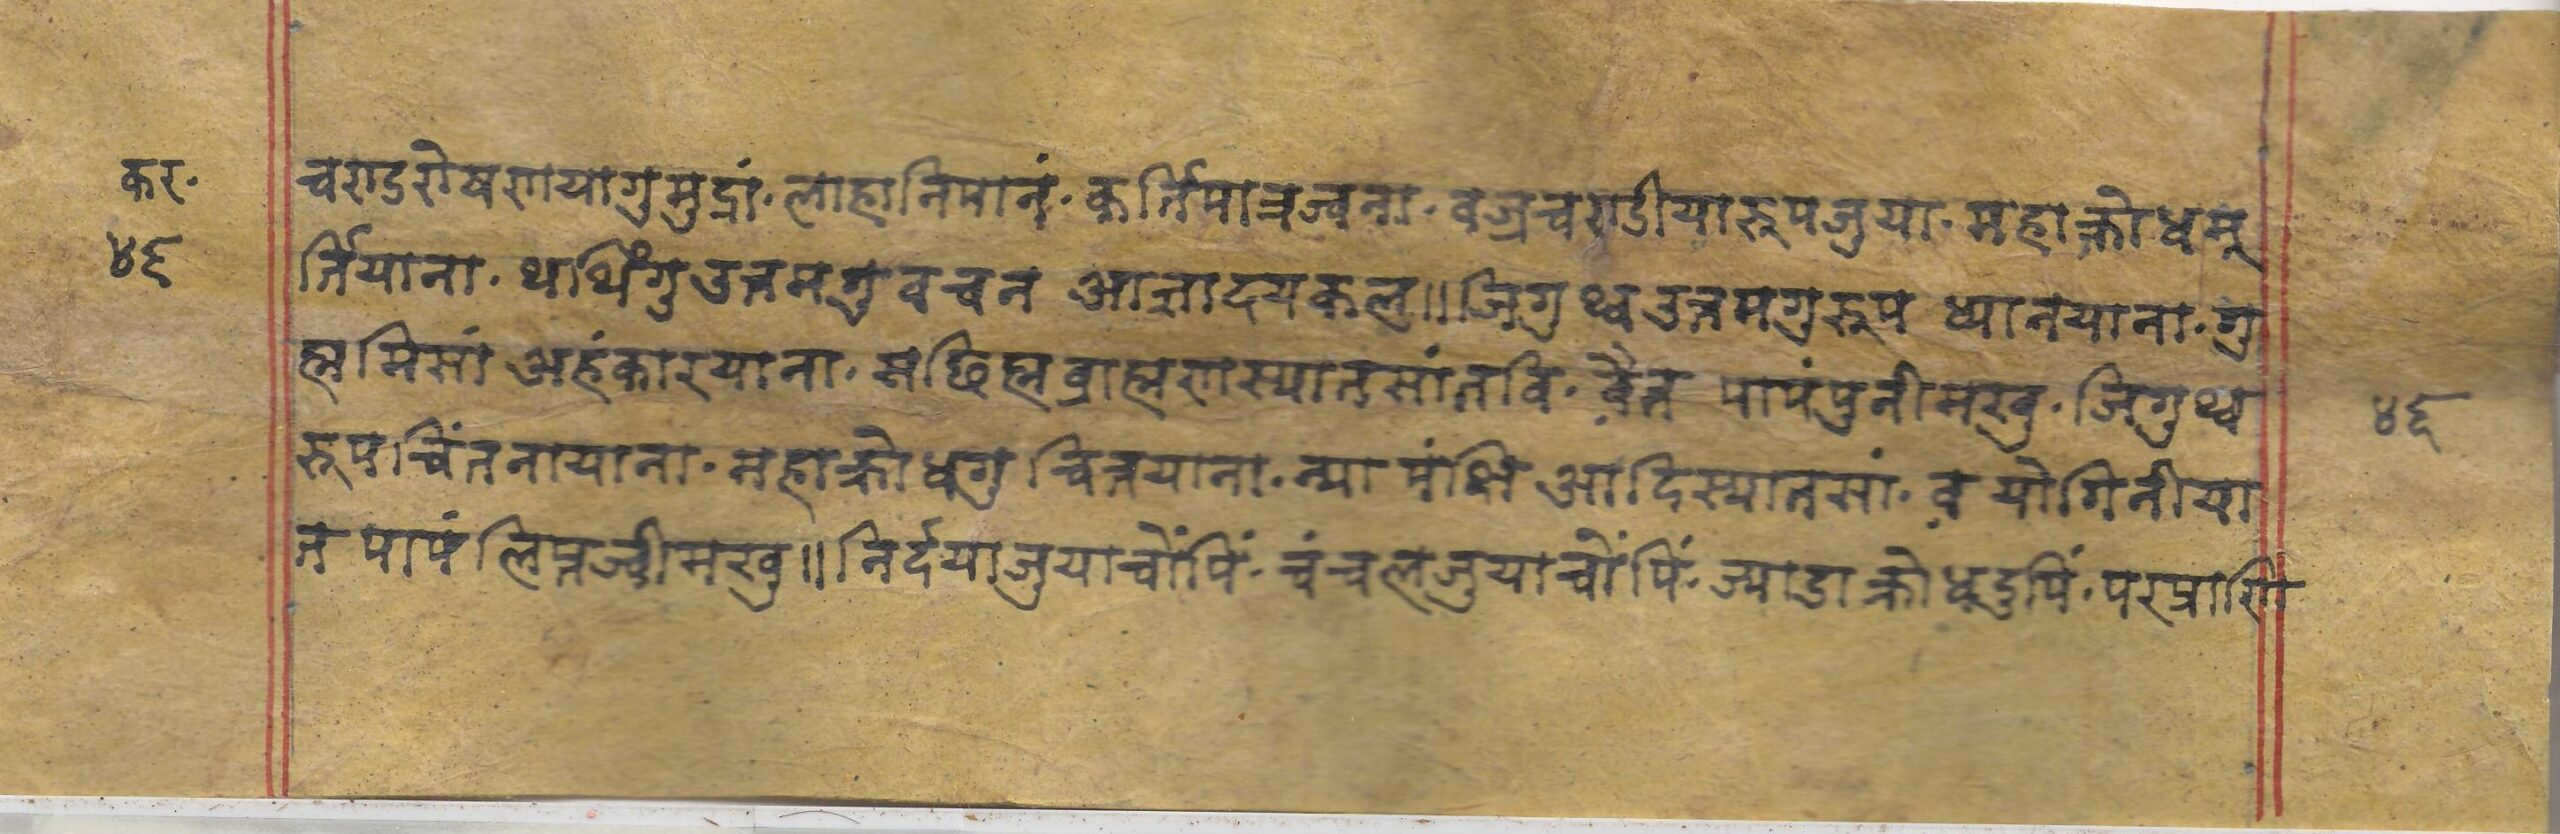 कर·
४६
चण्डरोषणयागु मुद्रां· लाहानिपानं· कर्त्तिपात्रज्वना· वज्रचण्डीया रूपजुया· महाक्रोधमू
र्त्तियाना· थथिंगु उत्तमगु वचन आज्ञादयकल॥ जिगु थ्व उत्तमगु रूप ध्यानयाना· गु
ह्म मिसां अहंकारयाना· सछिह्म ब्राह्मणस्यातसांतवि· वैत पापंपुनीमखु· जिगु थ्व
रूप चिंतनायाना· महाक्रोधगु चित्तयाना· न्या पंक्षि आदिस्यातसां· व योगिनीया
त पापं लिप्तज्वीमखु॥ निर्दयाजुयाचोंपिं· चंचलजुयाचोंपिं· ज्यादा क्रोधदुपिं· परप्राणि
४६